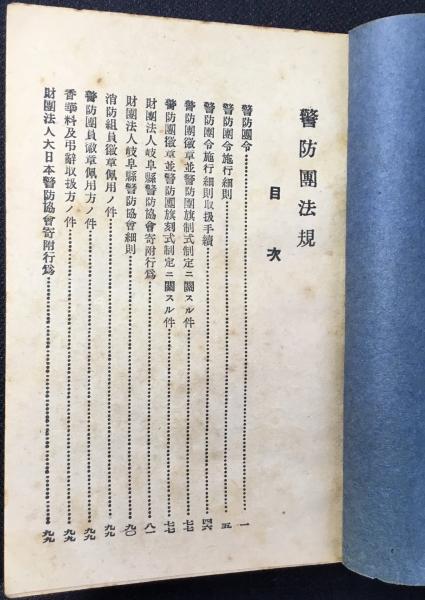 警防團法規
目次
警防團令……一
警防團令施行細則……五
警防團令施行細則取扱手續……四六
警防團徽章並警防團旗制式制定ニ關スル件……七七
警防團徽章並警防團旗刻式制定ニ關スル件……七七
財團法人岐阜縣警防協會寄附行爲……八一
財團法人岐阜縣警防協會細則……九〇
消防組員徽章佩用ノ件……九九
警防團員徽章佩用方ノ件……九九
香華料及弔辭取扱方ノ件……九九
財團法人大日本警防協會寄附行爲……九九